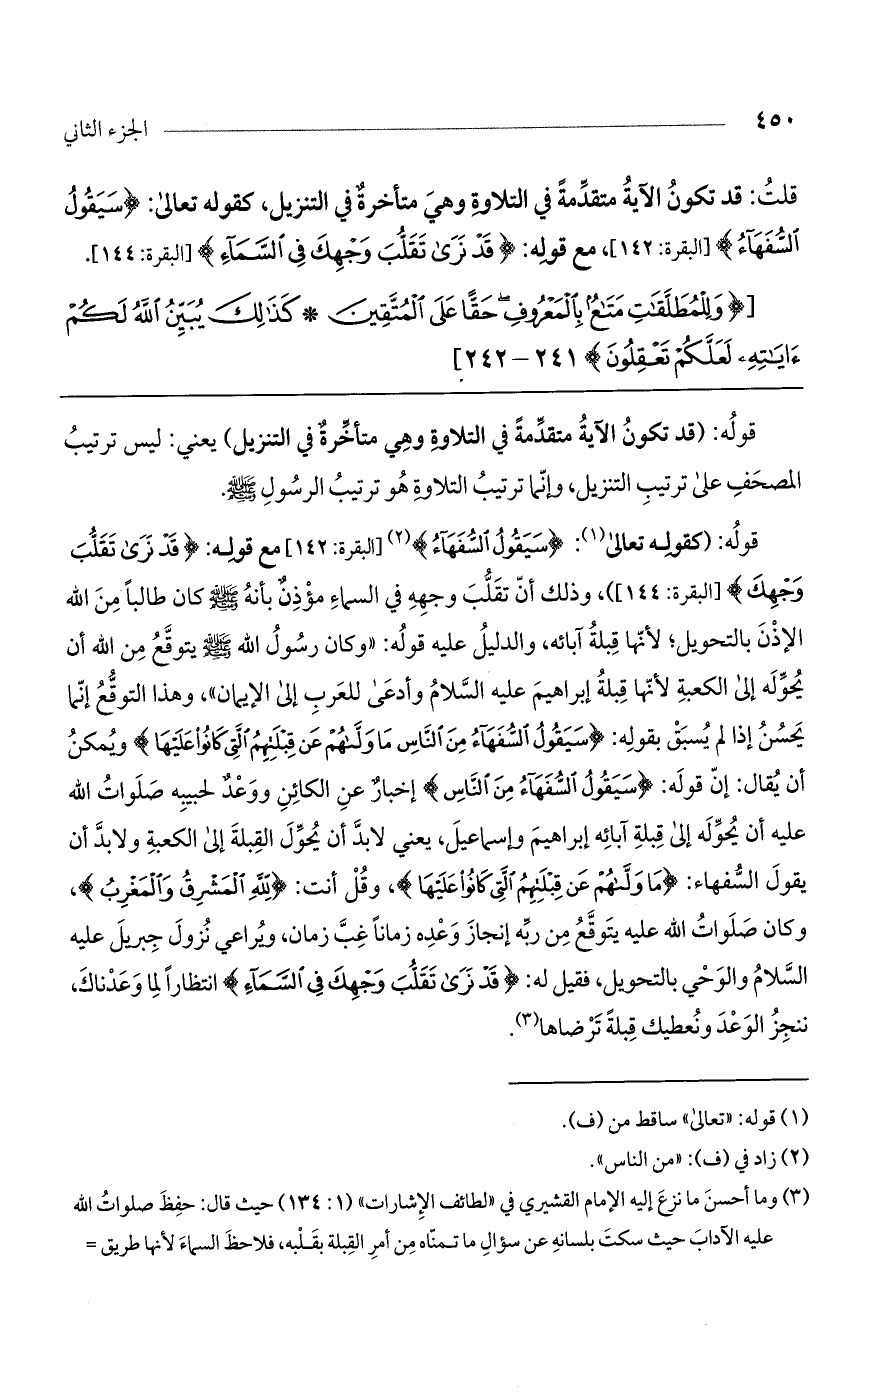 ٤٥٠ الجزء الثاني
قلتُ: قد تكونُ الآيةُ متقدِّمةً في التلاوةِ وهيَ متأخرةٌ في التنزيل، كقوله تعالىٰ: ﴿سَيَقُولُ
ٱلسُّفَهَآءُ﴾ [البقرة: ١٤٢]، مع قولِه: ﴿قَدْ نَرَىٰ تَقَلُّبَ وَجْهِكَ فِى ٱلسَّمَآءِ﴾ [البقرة: ١٤٤].
[﴿وَلِلْمُطَلَّقَٰتِ مَتَٰعٌۢ بِٱلْمَعْرُوفِ ۖ حَقًّا عَلَى ٱلْمُتَّقِينَ * كَذَٰلِكَ يُبَيِّنُ ٱللَّهُ لَكُمْ
ءَايَٰتِهِۦ لَعَلَّكُمْ تَعْقِلُونَ﴾ ٢٤١ – ٢٤٢]
قولُه: (قد تكونُ الآيةُ متقدِّمةً في التلاوةِ وهِي متأخِّرةٌ في التنزيل) يعني: ليس ترتيبُ
المصحَفِ علىٰ ترتيبِ التنزيل، وإنّما ترتيبُ التلاوةِ هُو ترتيبُ الرسُولِ ﷺ.
قولُه: (كقولِـه تعالىٰ(١): ﴿سَيَقُولُ ٱلسُّفَهَآءُ﴾(٢) [البقرة: ١٤٢] مع قولِـه: ﴿قَدْ نَرَىٰ تَقَلُّبَ
وَجْهِكَ﴾ [البقرة: ١٤٤])، وذلك أنّ تقَلُّبَ وجهِهِ في السماءِ مؤْذِنٌ بأنهُ ﷺ كان طالباً مِنَ الله
الإذْنَ بالتحويل؛ لأنّها قِبلةُ آبائه، والدليلُ عليه قولُه: «وكان رسُولُ الله ﷺ يتوقَّعُ مِن الله أن
يُحوِّلَه إلىٰ الكعبةِ لأنّها قِبلةُ إبراهيمَ عليه السَّلامُ وأدعَىٰ للعَربِ إلىٰ الإيمان»، وهذا التوقُّعُ إنّما
يَحسُنُ إذا لم يُسبَقْ بقولِه: ﴿سَيَقُولُ ٱلسُّفَهَآءُ مِنَ ٱلنَّاسِ مَا وَلَّىٰهُمْ عَن قِبْلَتِهِمُ ٱلَّتِى كَانُوا۟ عَلَيْهَا﴾ ويُمكنُ
أن يُقال: إنّ قولَه: ﴿سَيَقُولُ ٱلسُّفَهَآءُ مِنَ ٱلنَّاسِ﴾ إخبارٌ عنِ الكائنِ ووَعْدٌ لحبيبِه صَلَواتُ الله
عليه أن يُحوِّلَه إلىٰ قِبلةِ آبائِه إبراهيمَ وإسماعيلَ، يعني لابدَّ أن يُحوِّلَ القِبلةَ إلىٰ الكعبةِ ولابدَّ أن
يقولَ السُّفهاء: ﴿مَا وَلَّىٰهُمْ عَن قِبْلَتِهِمُ ٱلَّتِى كَانُوا۟ عَلَيْهَا﴾، وقُلْ أنت: ﴿لِلَّهِ ٱلْمَشْرِقُ وَٱلْمَغْرِبُ﴾،
وكان صَلَواتُ الله عليه يتَوقَّعُ مِن ربِّه إنجازَ وَعْدِه زماناً غِبَّ زمان، ويُراعي نُزولَ جِبريلَ عليه
السَّلامُ والوَحْي بالتحويل، فقيل له: ﴿قَدْ نَرَىٰ تَقَلُّبَ وَجْهِكَ فِى ٱلسَّمَآءِ﴾ انتظاراً لِما وَعَدْناكَ،
ننجِزُ الوَعْدَ ونُعطيك قِبلةً تَرْضاها(٣).
(١) قوله: «تعالىٰ» ساقط من (ف).
(٢) زاد في (ف): «من الناس».
(٣) وما أحسنَ ما نزعَ إليه الإمام القشيري في «لطائف الإشارات» (١: ١٣٤) حيث قال: حفِظَ صلواتُ الله
عليه الآدابَ حيث سكتَ بلسانهِ عن سؤالِ ما تـمنّاه مِن أمرِ القِبلة بقَـلْبه، فلاحظَ السماءَ لأنها طريق =